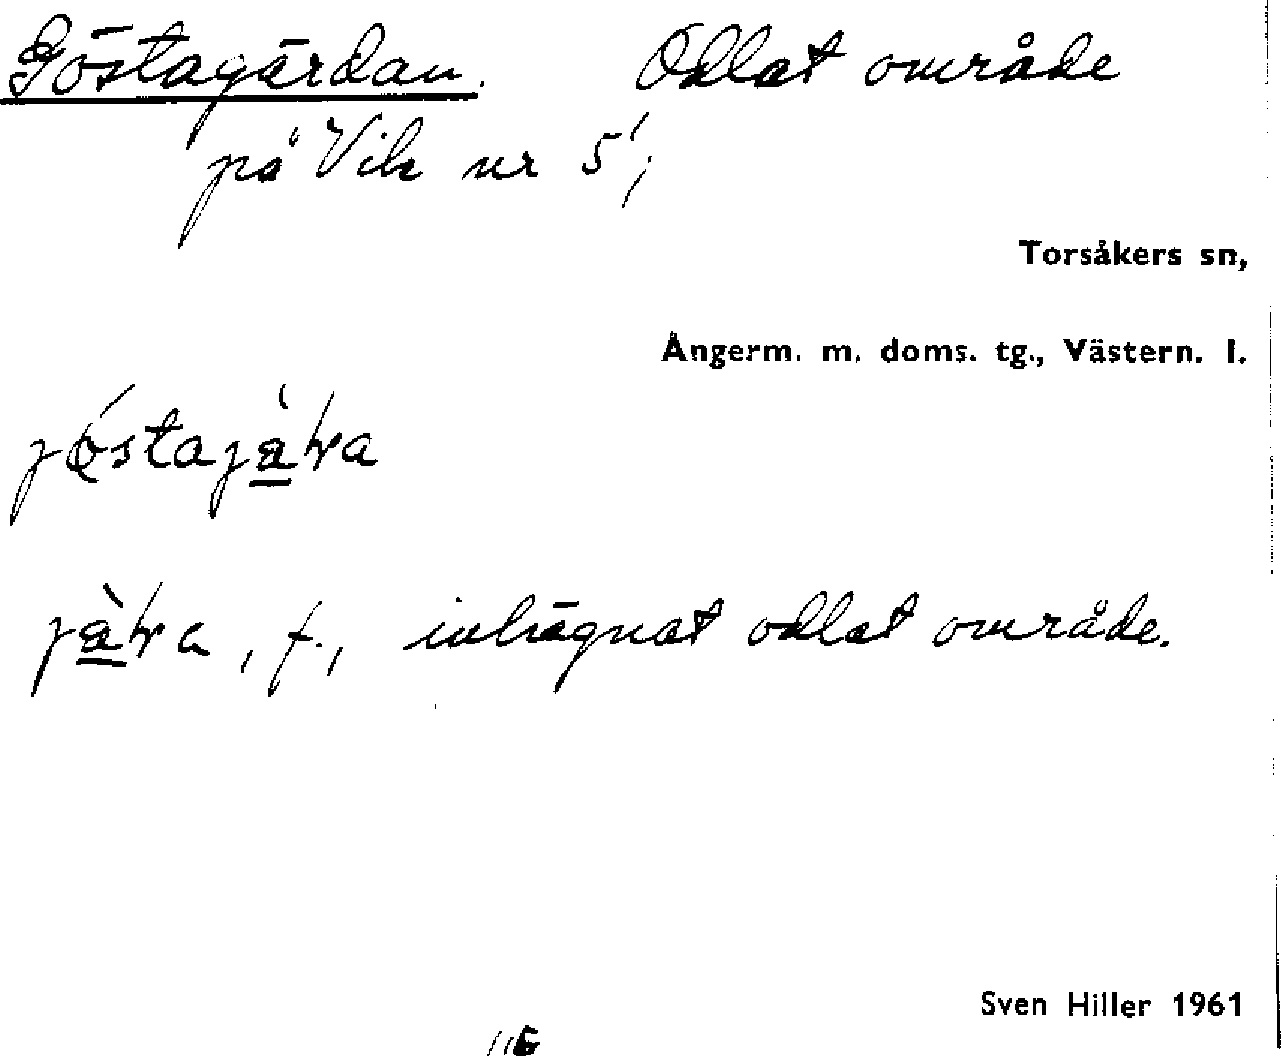 Göstagärdan. Odlat område
på Vik nr 5;
Torsåkers sn,
Ångerm. m. doms. tg., Västern. l.
inhägnat odlat område.
Sven Hiller 1961